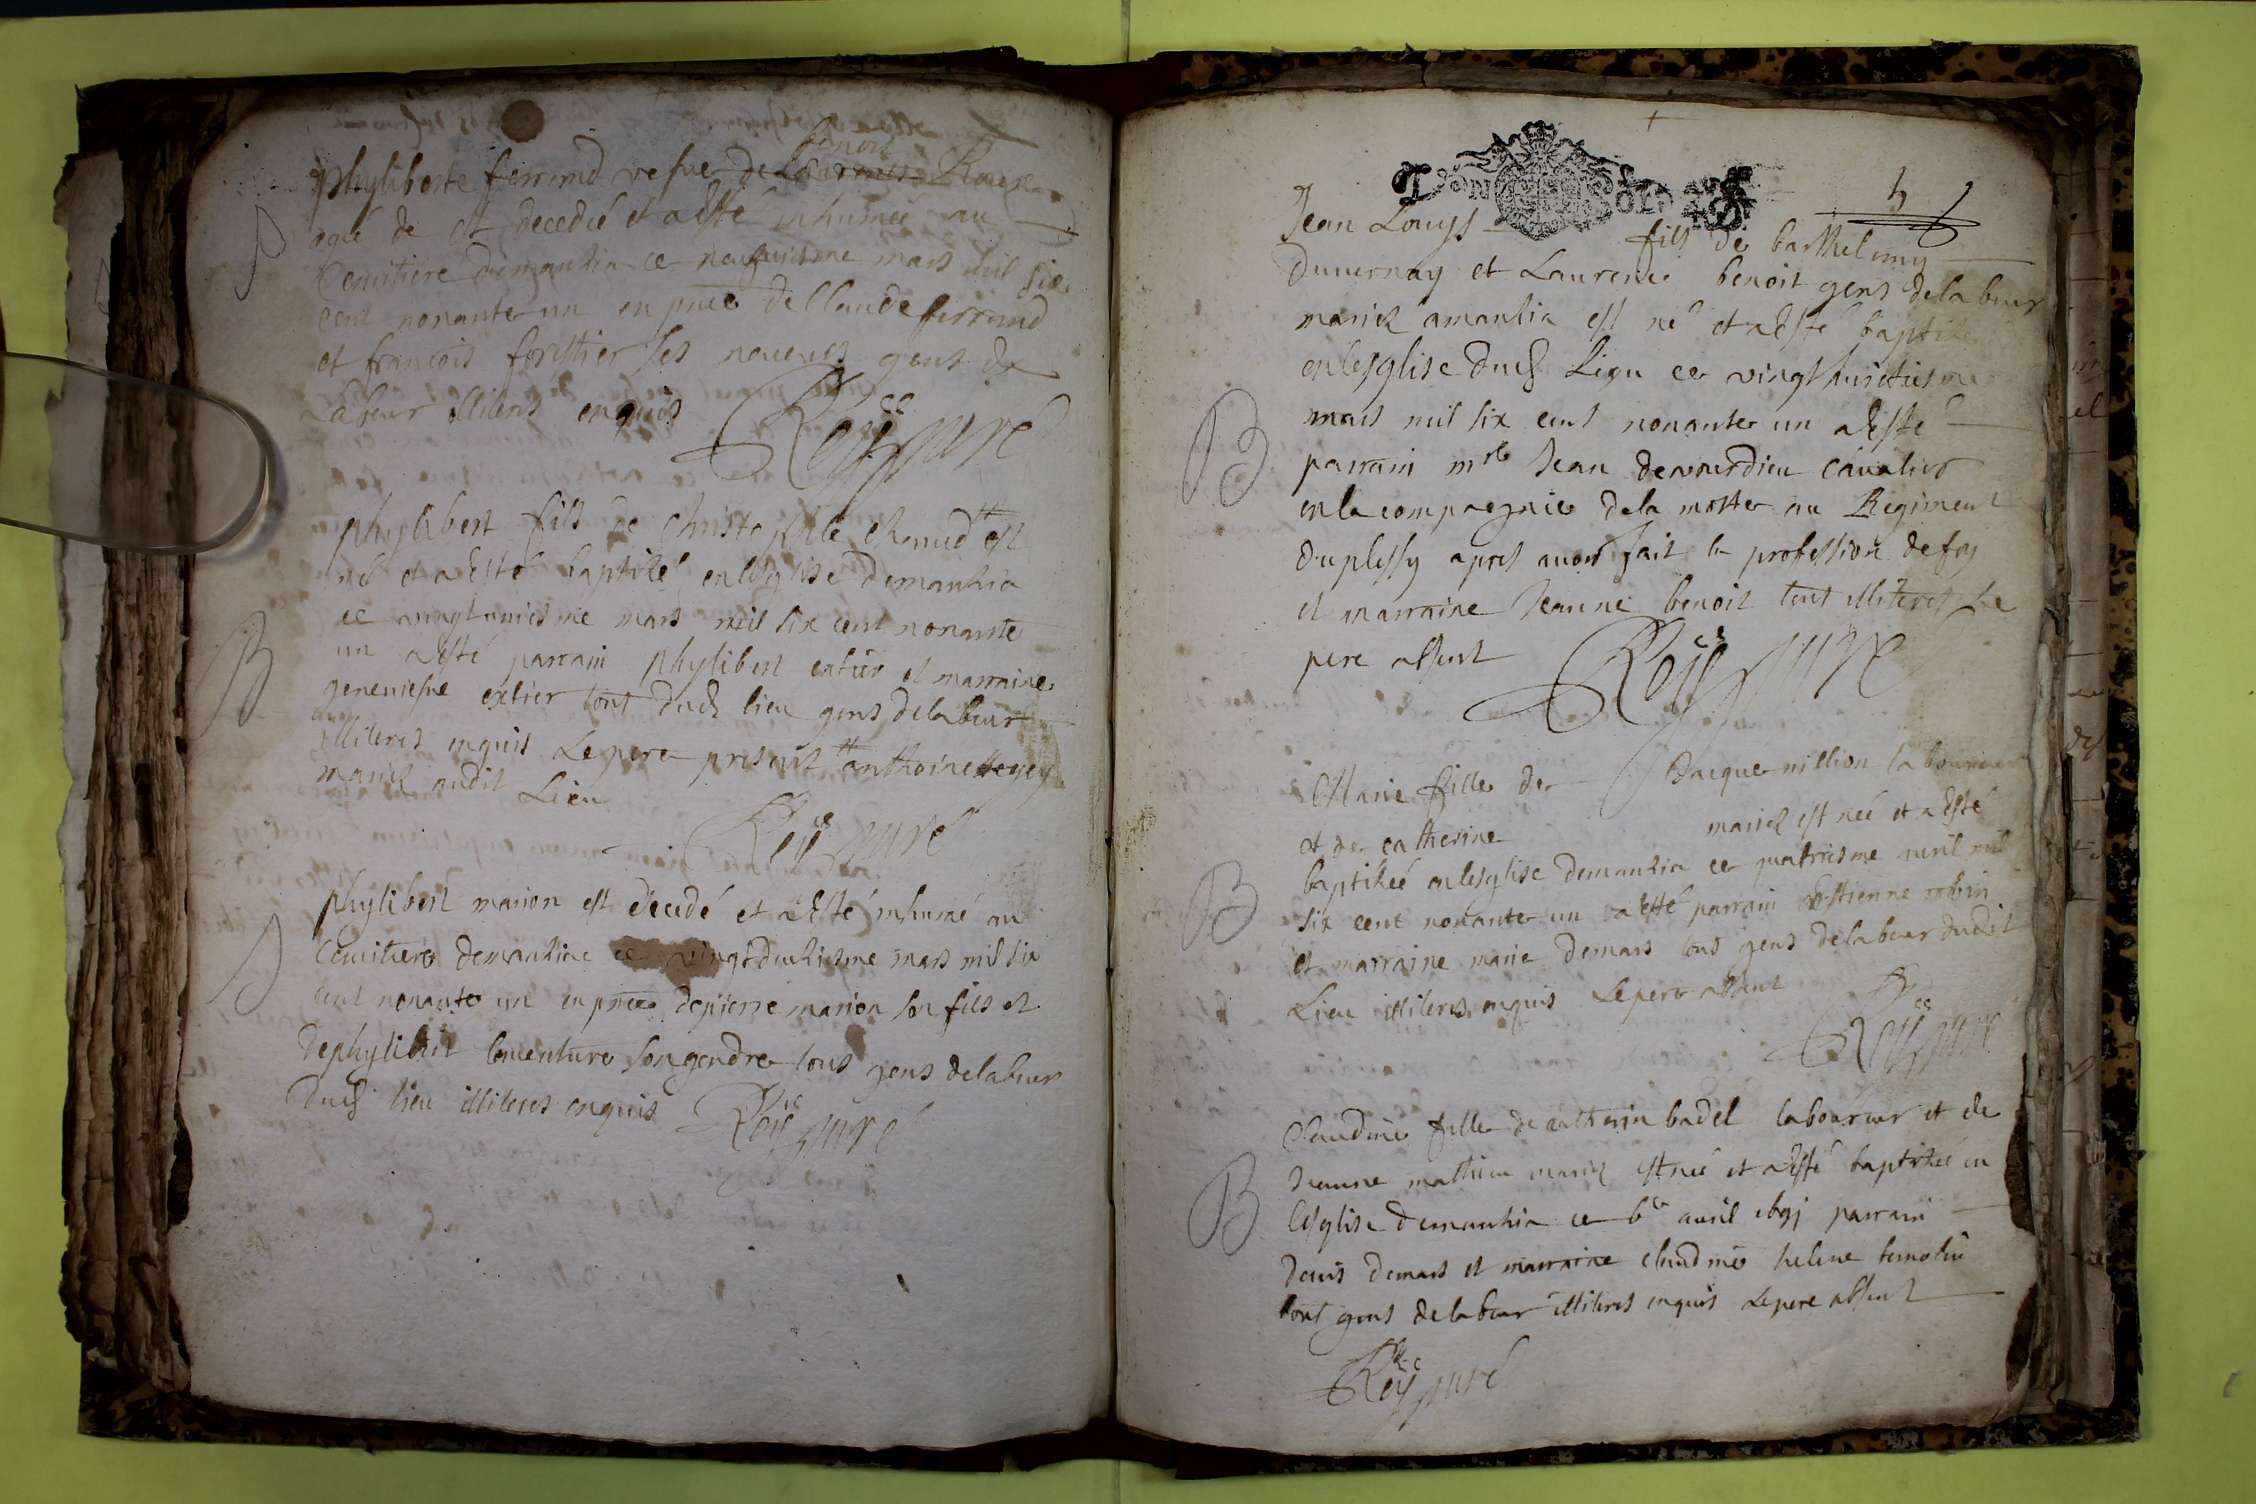 benoit
phyliberte ferrand vefve de Laurant Roux
agé de et decedée et a Esté inhumée au
Cemitiere demanzia ce neufuiesme mars mil six
cent nonante un en pnce de Claude ferrand
et francois forestier ses neveux gens de
Labeur illiteres enquis Reÿ curé
phylibert fils de Christophle Chanud est
né et a Esté baptizé en lesglise demanzia
ce vingt uniesme mars mil six cent nonante
un a Esté parrain phylibert extier et marraine
geneviesve extier tout dud lieu gens delabeur
illiteres enquis Lepere present anthoinette
mariez audit Lieu
Reÿ curé
phylibert marion est décedé et a Esté inhumé au
Cemitiere demanziae ce vingt deuxiesme mars mil six
cent nonante un en pnce depierre marion son fils et
dephylibert bonenture son gendre tous gens delabeur
dud lieu illiteres enquis Reÿ curé
B
B
LYON
SOLS
Jean Louys fils de barthelemy
Duvernay et Laurence benoit gens delabeur
mariez amanzia est né et a Esté baptizé
en lesglise dud Lieu ce vingt huictiesme
mars mil six cent nonante un a Esté
parrain mre Jean demourdieu Cavalier
en la compagnie dela motte au Regiment
duplessy apres avoir fait la profession defoy
et marraine Jeanne benoit tout illiteres Le
pere absent Reÿ curé
Marie fille de Jacque million laboureur
et de catherine mariez est neé et a Esté
baptizeé en lesglise demanzia ce quatriesme avril mil
six cent nonante un a esté parrain Estienne robin
et marraine marie demars tous gens delabeur dudit
Lieu illiteres enquis Lepere absent
Reÿ curé
Claudine fille de anthoine badel laboureur et de
Jeanne mathieu mariez est neé et a Esté baptizeé en
lesglise demanzia ce avril parrain
denis demars et marraine claudine helene
tout gens delabeur illiteres enquis Lepere absent
Reÿ curé
B
B
B